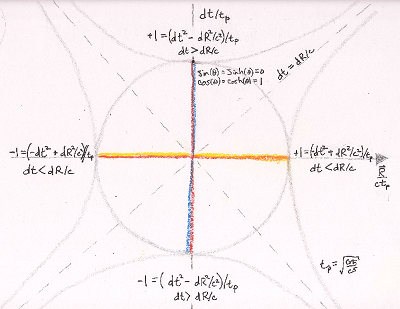 dt/tₚ
+1 = (dt² - dR²/c²)/tₚ
dt > dR/c
dt = dR/c
sin(θ) = sinh(θ) = 0
cos(θ) = cosh(θ) = 1
-1 = (-dt² + dR²/c²)/tₚ
dt < dR/c
+1 = (-dt² + dR²/c²)/tₚ
dt < dR/c
R
ctₚ
-1 = (dt² - dR²/c²)/tₚ
dt > dR/c